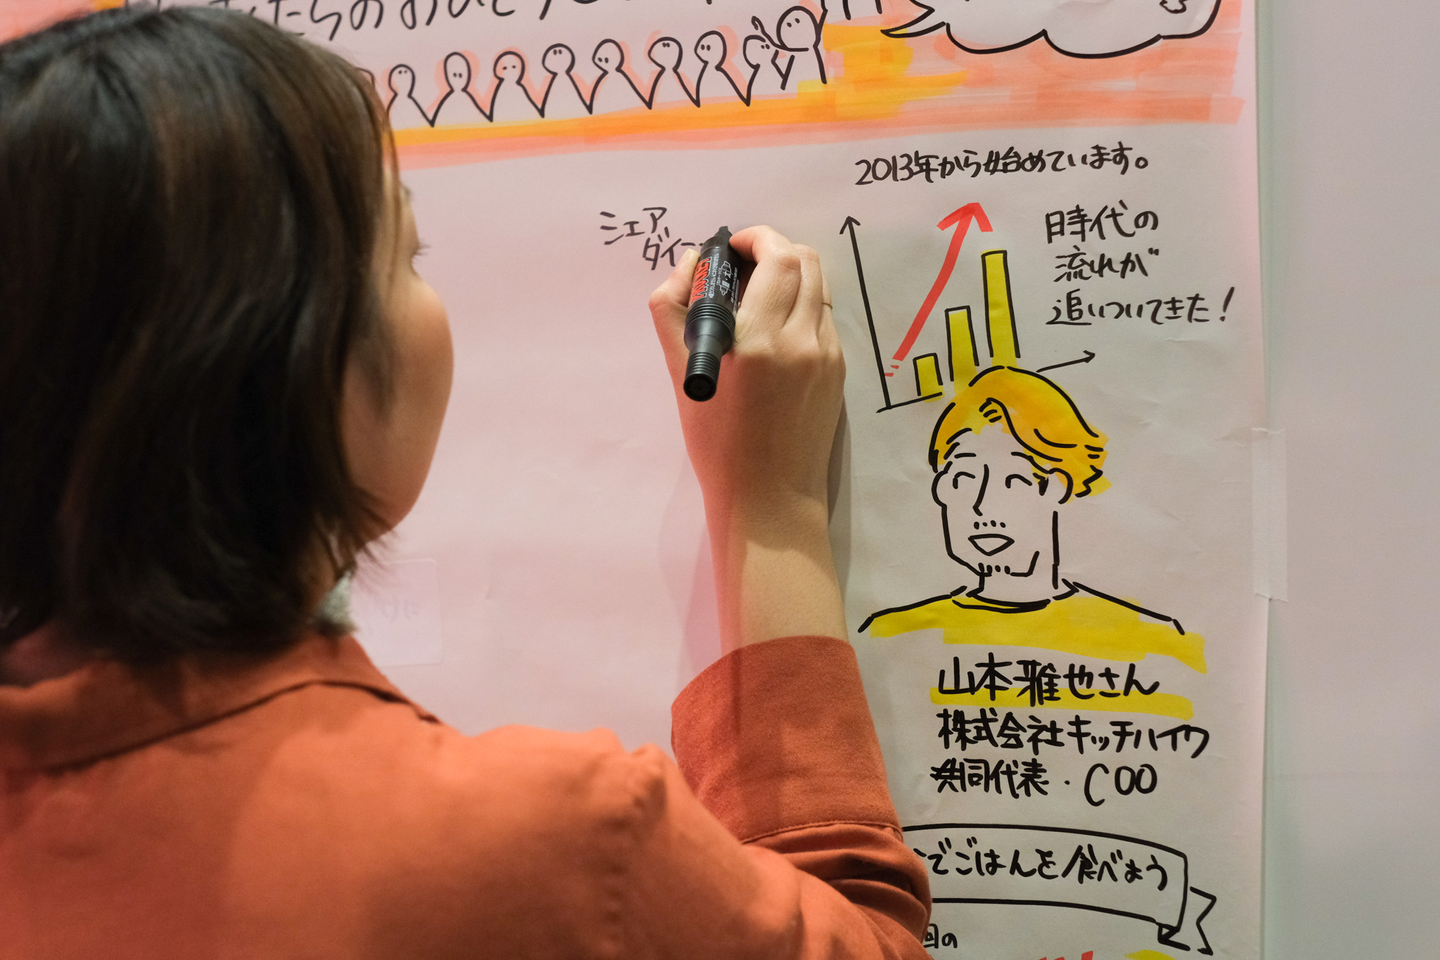 たちのおひとり
2013年から始めています。
シェア
ダイニ
時代の
流れが
追いついてきた！
山本雅也さん
株式会社キッチハイク
共同代表・COO
でごはんを食べよう
回の